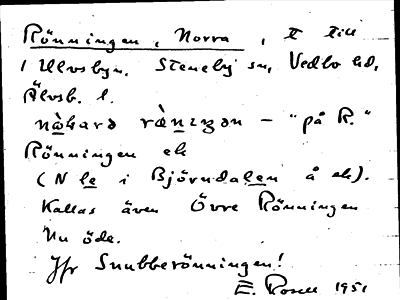 Rönningen, Norra, t till
1 Ulvsbyn. Steneby sn, Vedbo hd,
Älvsb. l.
nɷ̀hard rǜnıŋən – "på R."
Rönningen ek
(N le i Björndalen å ek).
Kallas även Övre Rönningen
Nu öde.
Jfr Snubberönningen!
E. Rosell 1951